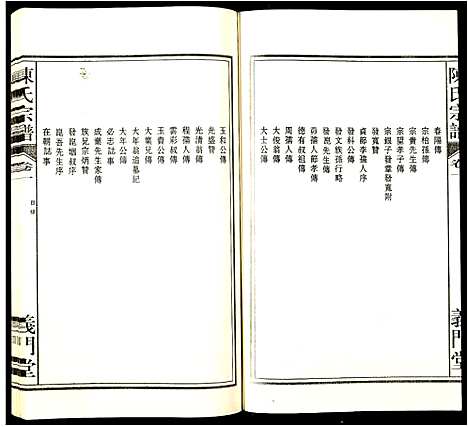 陳氏宗譜
卷一
義門堂
春陽傳
宗柏孫傳
宗貴先生傳
宗望孝子傳
宗銀子發章發寬附
發寬贊
貞節李孺人序
發科公傳
發文族孫行略
發崑先生傳
貞孺人節孝傳
德有叔祖傳
周孺人傳
大俊翁傳
大士公傳
玉和公傳
光盛贊
光清翁傳
程孺人傳
雲彩叔傳
玉書公傳
大業兄傳
大年翁追墓記
大年公傳
必志誌事
成業先生家傳
族兄宗炳贊
發崑姻叔序
崑吾先生序
在朝誌事
陳氏宗譜
卷一
目錄
義門堂